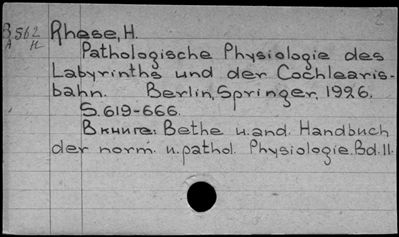 B 562 Rhese, H.
A H
Pathologische Physiologie des
Labyrinths und der Cochlearis-
bahn. Berlin, Springer, 1926.
S. 619-666.
В книге: Bethe u. and. Handbuch
der norm. u. pathol. Physiologie. Bd. 11.